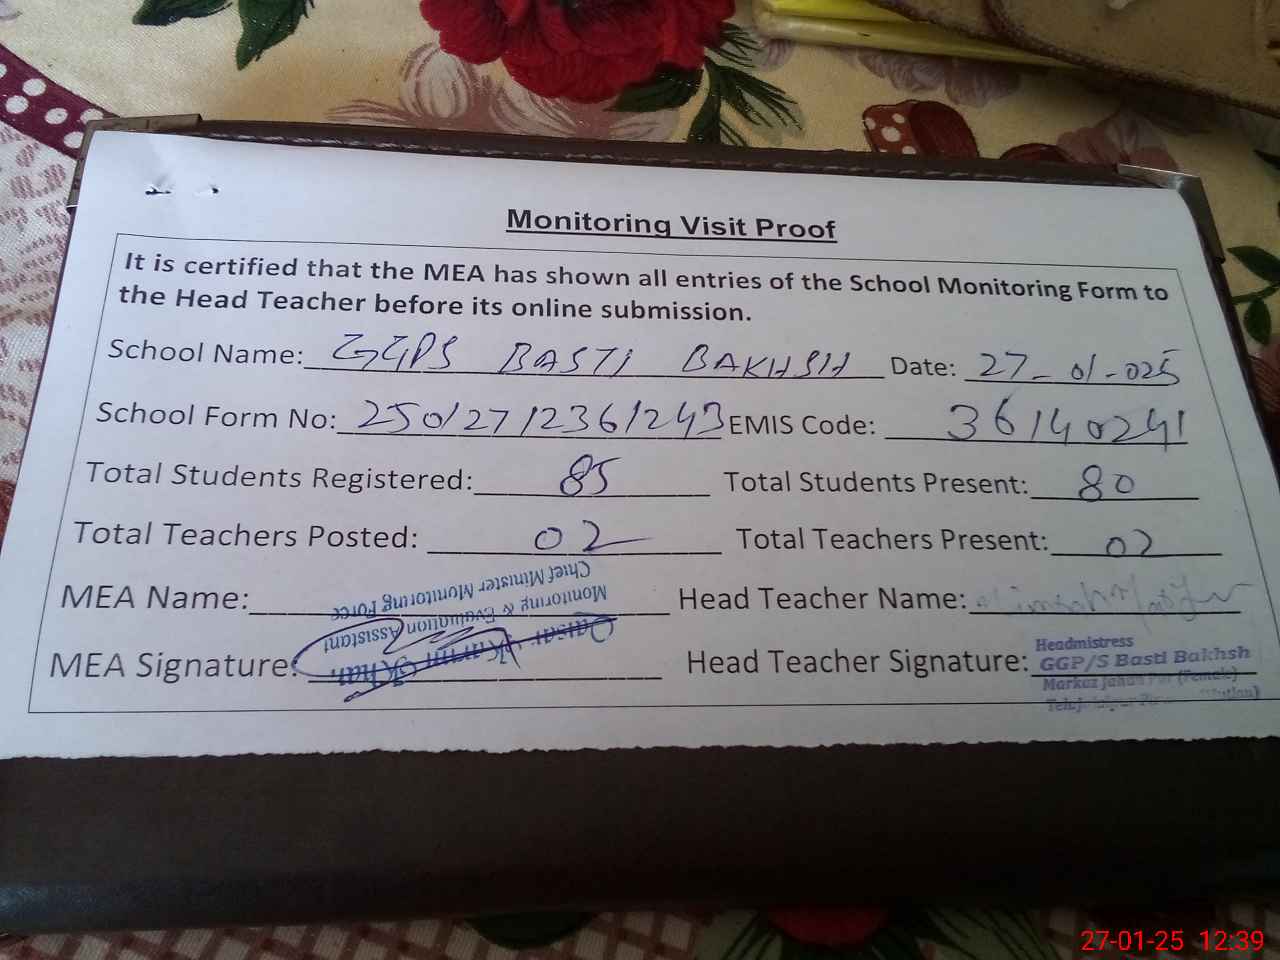 Monitoring Visit Proof
It is certified that the MEA has shown all entries of the School Monitoring Form to
the Head Teacher before its online submission.
School Name: GGPS BASTI BAKHSH Date: 27-01-025
School Form No: 25012712361243 EMIS Code: 36140241
Total Students Registered: 85 Total Students Present: 80
Total Teachers Posted: 02 Total Teachers Present: 02
MEA Name: Head Teacher Name:
MEA Signature: Head Teacher Signature:
Qaisar Karim Khan
Monitoring & Evaluation Assistant
Chief Minister Monitoring Force
Headmistress
GGP/S Basti Bakhsh
Markaz (Female)
27-01-25 12:39